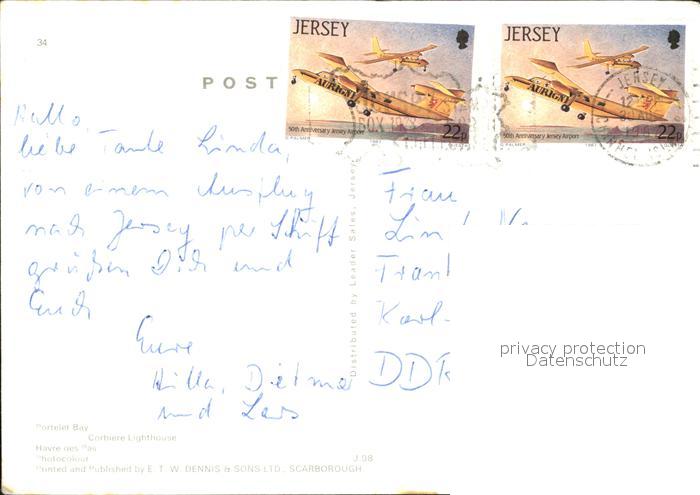 34
POST
JERSEY
AURIGNY
50th Anniversary Jersey Airport
22p
PALMER 1987
JERSEY
AURIGNY
50th Anniversary Jersey Airport
22p
PALMER 1987
JERSEY
Hallo,
liebe Tante Linda,
von einem Ausflug
nach Jersey per Schiff
grüßen Dich und
Euch
Eure
Hilla, Dietmar
und Lars
Distributed by Leader Sales, Jersey
Frau
Lin
Frank
Karl-
DDR
privacy protection
Datenschutz
Portelet Bay
Corbiere Lighthouse
Havre des Pas
Photocolour J.98
Printed and Published by E. T. W. DENNIS & SONS LTD., SCARBOROUGH